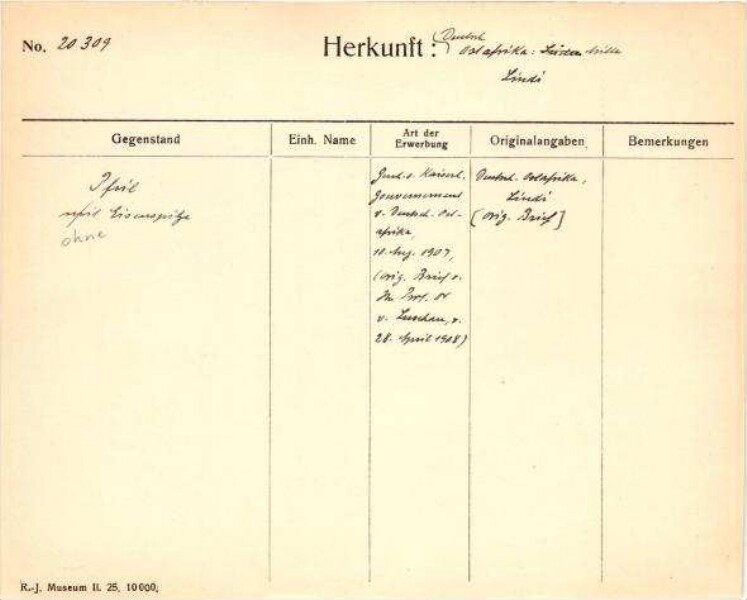 No. 20309
Herkunft: (Deutsch
Ostafrika:
Lindi
Gegenstand
Einh. Name
Art der
Erwerbung
Originalangaben
Bemerkungen
Pfeil
mit Eisenspitze
ohne
v. Kaiserl.
Gouvernement
v. Deutsch-Ost-
afrika,
10. Aug. 1907,
(orig. Brief v.
Hn. Prof. Dr
v. Luschan, v.
28. April 1908)
Deutsch-Ostafrika,
Lindi
[orig. Brief]
R.-J. Museum II. 25, 10000,